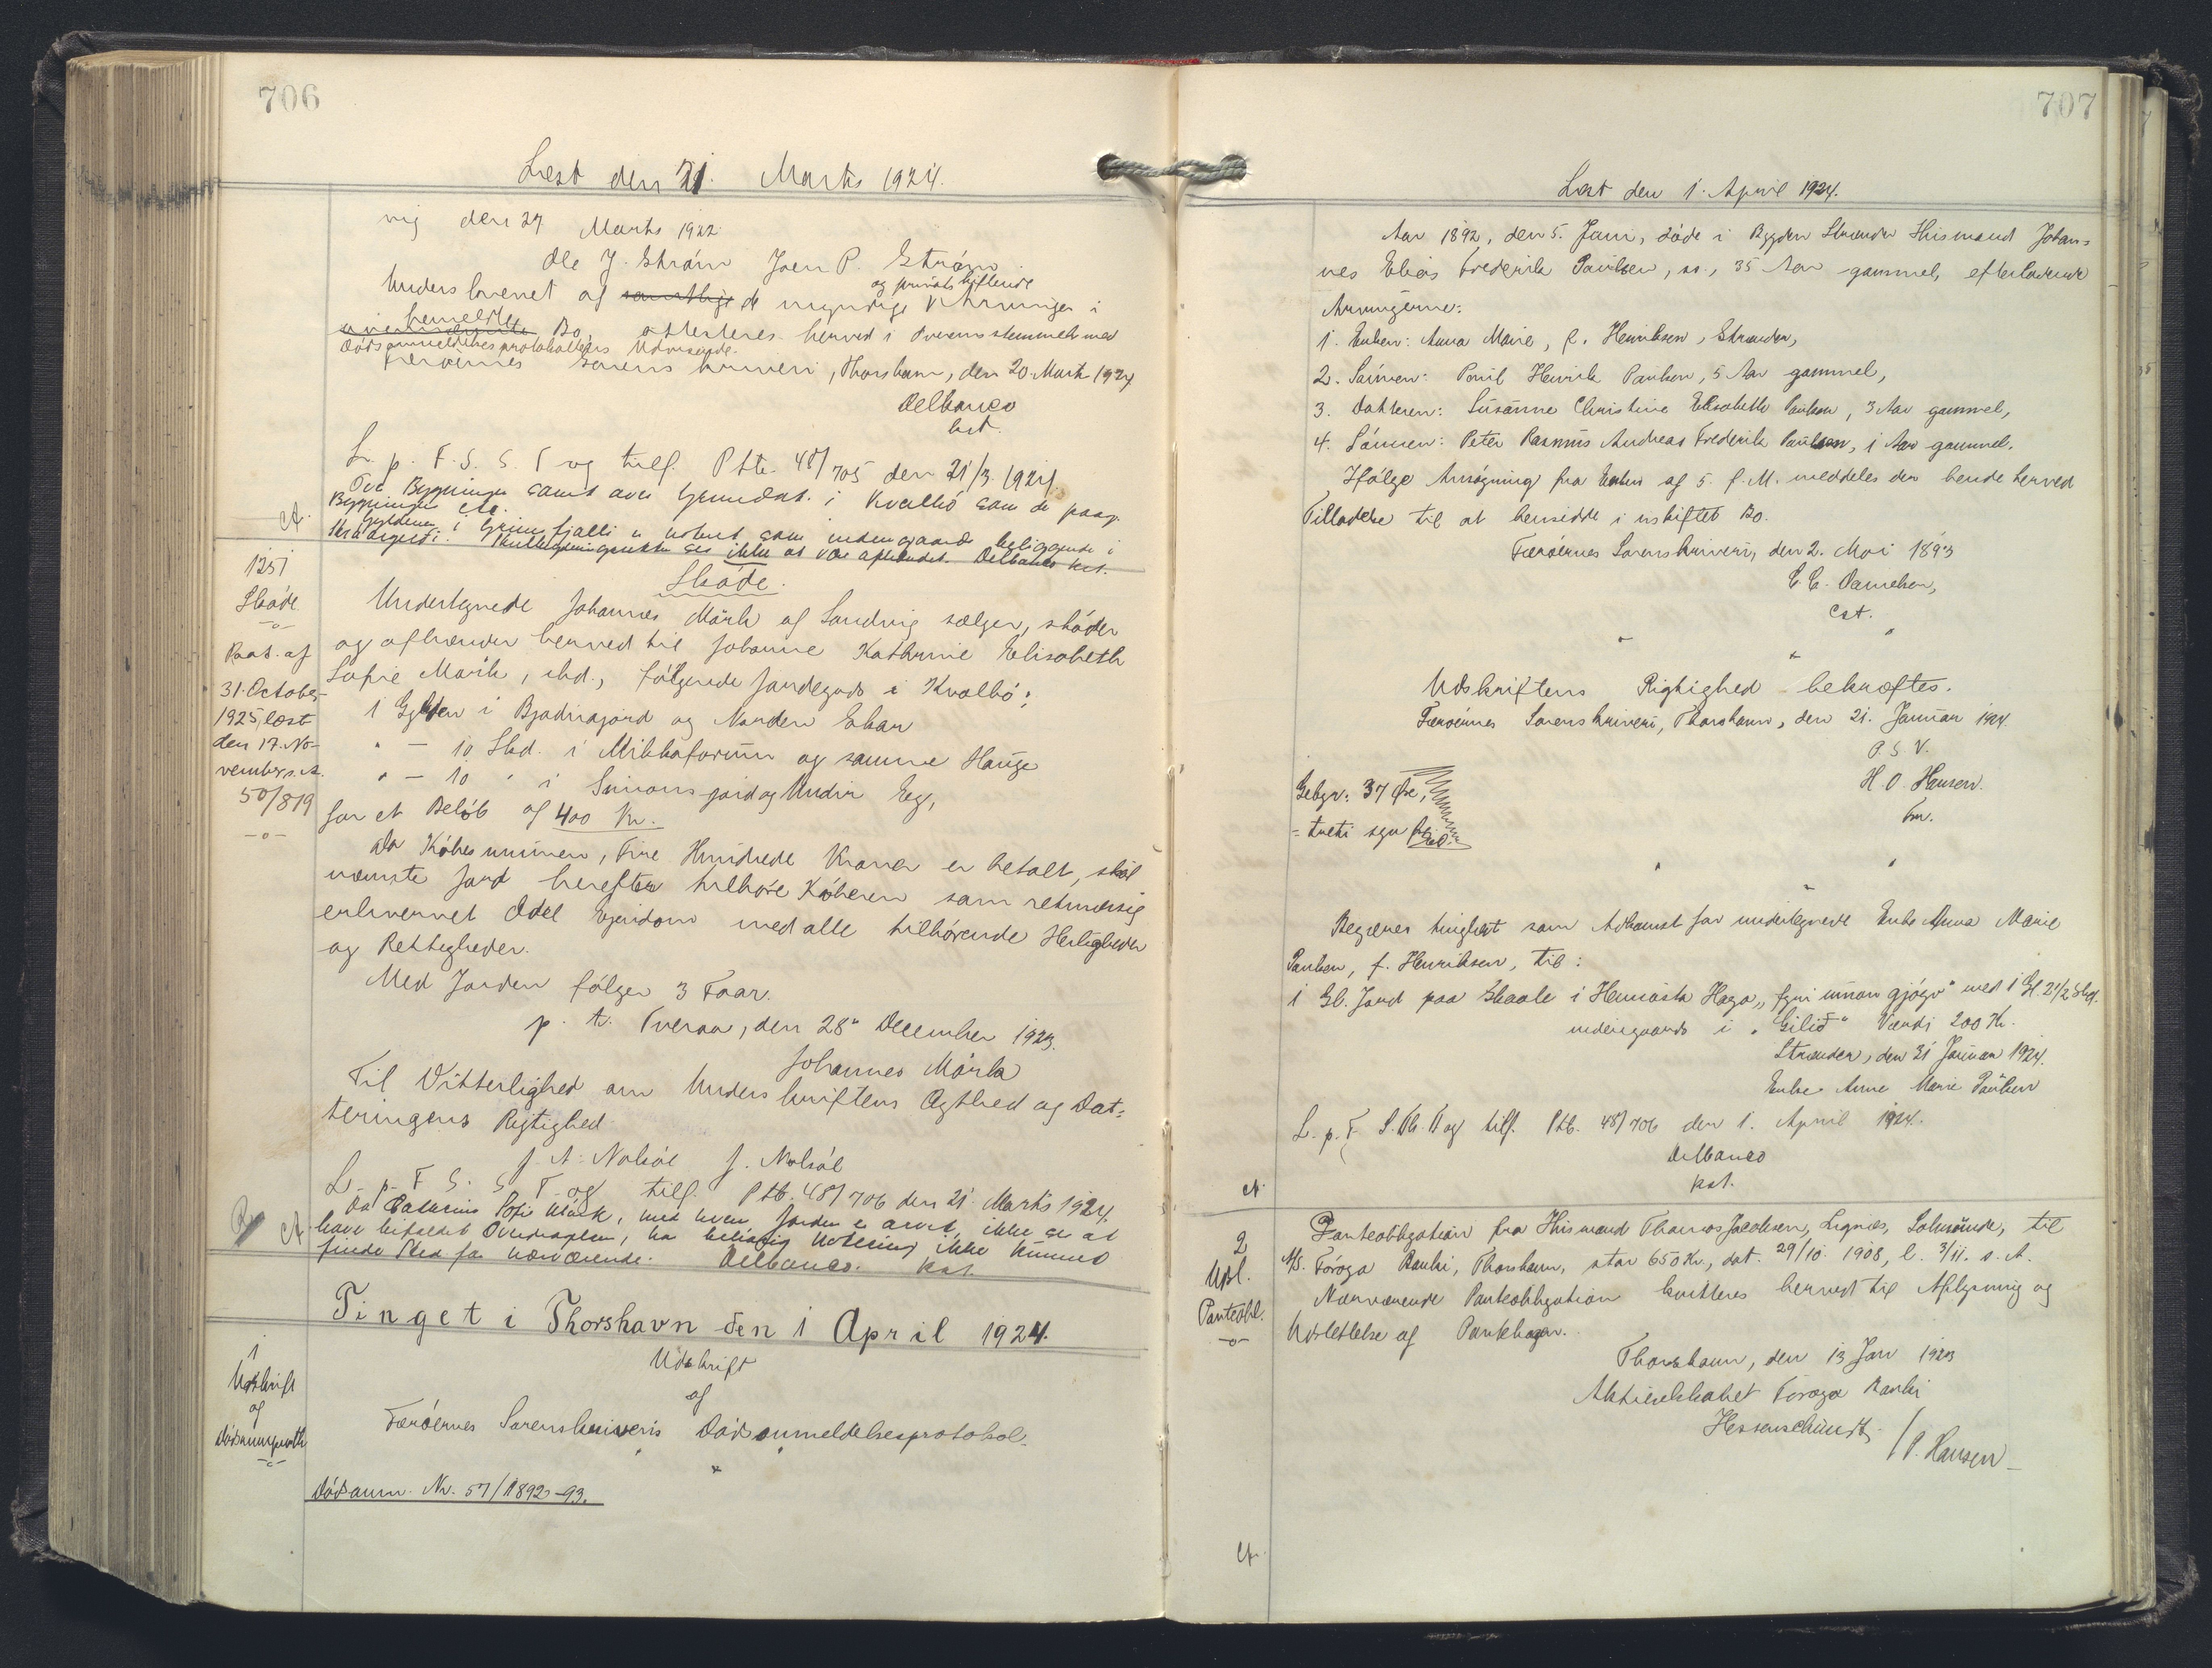 706
Læst den 21. Marts 1924.
vig den 27 Marts 1922
Ole J. Strøm Joen P. Strøm
og privatskiftende
Underskrevet af samtlige de myndige Arvinger i
bemeldte
Bo, attesteres herved i Overensstemmelse med
Dødsanmeldelsesprotokollens Udvisende.
Færøernes Sorenskriveri, Thorshavn, den 20. Marts 1924
Delbanco
kst.
L. p. F. S. S. T og tilf. Ptb. 48/705 den 21/3. 1924
Bygninger samt over Grundst. i Kvalbø som de paag.
Bygninger etc.
Gylden i Grimsfjalli er noteret som indengaards beliggende i
ses ikke at være afhændet. Delbanco kst.
ct.
1251
Skøde
-o-
Paat. af
31. October
1925, læst
den 17. No-
vember s. A.
50/819
-o-
Skøde.
Undertegnede Johannes Mørk af Sandvig sælger, skøder
og afhænder herved til Johanne Kathrine Elisabeth
Sofie Mørk, ibd., følgende Jordegods i Kvalbø:
1 Gylden i Bjadnajord og Norden Ebar
" — 10 Skd. i Mikkaforum og samme Hauge
" — 10 " i Simonsjord og Undir Eg,
for et Beløb af 400 Kr.
Da Købesummen, Fire Hundrede Kroner er betalt, skal
nævnte Jord herefter tilhøre Køberen som retmæssig
erhvervet Odel Ejendom med alle tilhørende Herligheder
og Rettigheder.
Med Jorden følger 3 Faar.
p. t. Tveraa, den 28" December 1923.
Johannes Mørk
Til Vitterlighed om Underskriftens Ægthed og Dat-
teringens Rigtighed
J. A. Nolsøe J. Nolsøe
L. p. F. S. S. T og tilf. Ptb. 48/706 den 21. Marts 1924.
Da Cathrine Sofie Mørk, med hvem Jorden er arvet, ikke ses at
have tiltraadt Overdragelsen, har Notering ikke kunnet
finde Sted for nærværende. Delbanco. kst.
ct.
Tinget i Thorshavn den 1 April 1924.
1
Udskrift
af
-o-
Udskrift
af
Færøernes Sorenskriveris Dødsanmeldelsesprotokol.
Dødsanm. Nr. 57/1892-93.
707
Læst den 1. April 1924.
Aar 1892, den 5. Juni, døde i Bygden Strender Husmand Johan-
nes Elias Frederik Paulsen, sst., 35 Aar gammel, efterladende
Arvingerne:
1. Enken: Anna Marie, f. Henriksen, Strender,
2. Sønnen: Poul Henrik Paulsen, 5 Aar gammel,
3. Datteren: Susanne Christine Elisabeth Paulsen, 3 Aar gammel,
4. Sønnen: Peter Rasmus Andreas Frederik Paulsen, 1 Aar gammel.
Ifølge Ansøgning fra Enken af 5. f. M. meddeles der hende herved
Tilladelse til at hensidde i uskiftet Bo.
Færøernes Sorenskriveri, den 2. Mai 1893
E. C. Danielsen,
cst.
Udskriftens Rigtighed bekræftes.
Færøernes Sorenskriveri, Thorshavn, den 21. Januar 1924.
P. S. V.
H. O. Hansen.
Fm.
Gebyr: 37 Øre,
= treti syv Øre
Begæres tinglæst som Adkomst for undertegnede Enke Anna Marie
Paulsen, f. Henriksen, til:
1 Gl. Jord paa Skaale i Heimasta Haga „fyri innan gjógv" med 1 Gl. 2½ Skd.
indengaards i „Gilið" Værdi 200 Kr.
Strender, den 31 Januar 1924.
Enke Anne Marie Paulsen
L. p. F. S. Th. T og tilf. Ptb. 48/706 den 1. April 1924.
Delbanco
kst.
ct.
2
Udsl.
Panteobl.
-o-
Panteobligation fra Husmand Thomas Jacobsen, Lognæs, Solmunde, til
A/S. Føroya Banki, Thorshavn, stor 650 Kr., dat. 29/10. 1908, l. 3/11. s. A.
Nærværende Panteobligation kvitteres herved til Aflysning og
Udslettelse af Pantebogen.
Thorshavn, den 13 Jan 1923
Aktieselskabet Føroya Banki
Hessenschmidt / P. Hansen
ct.